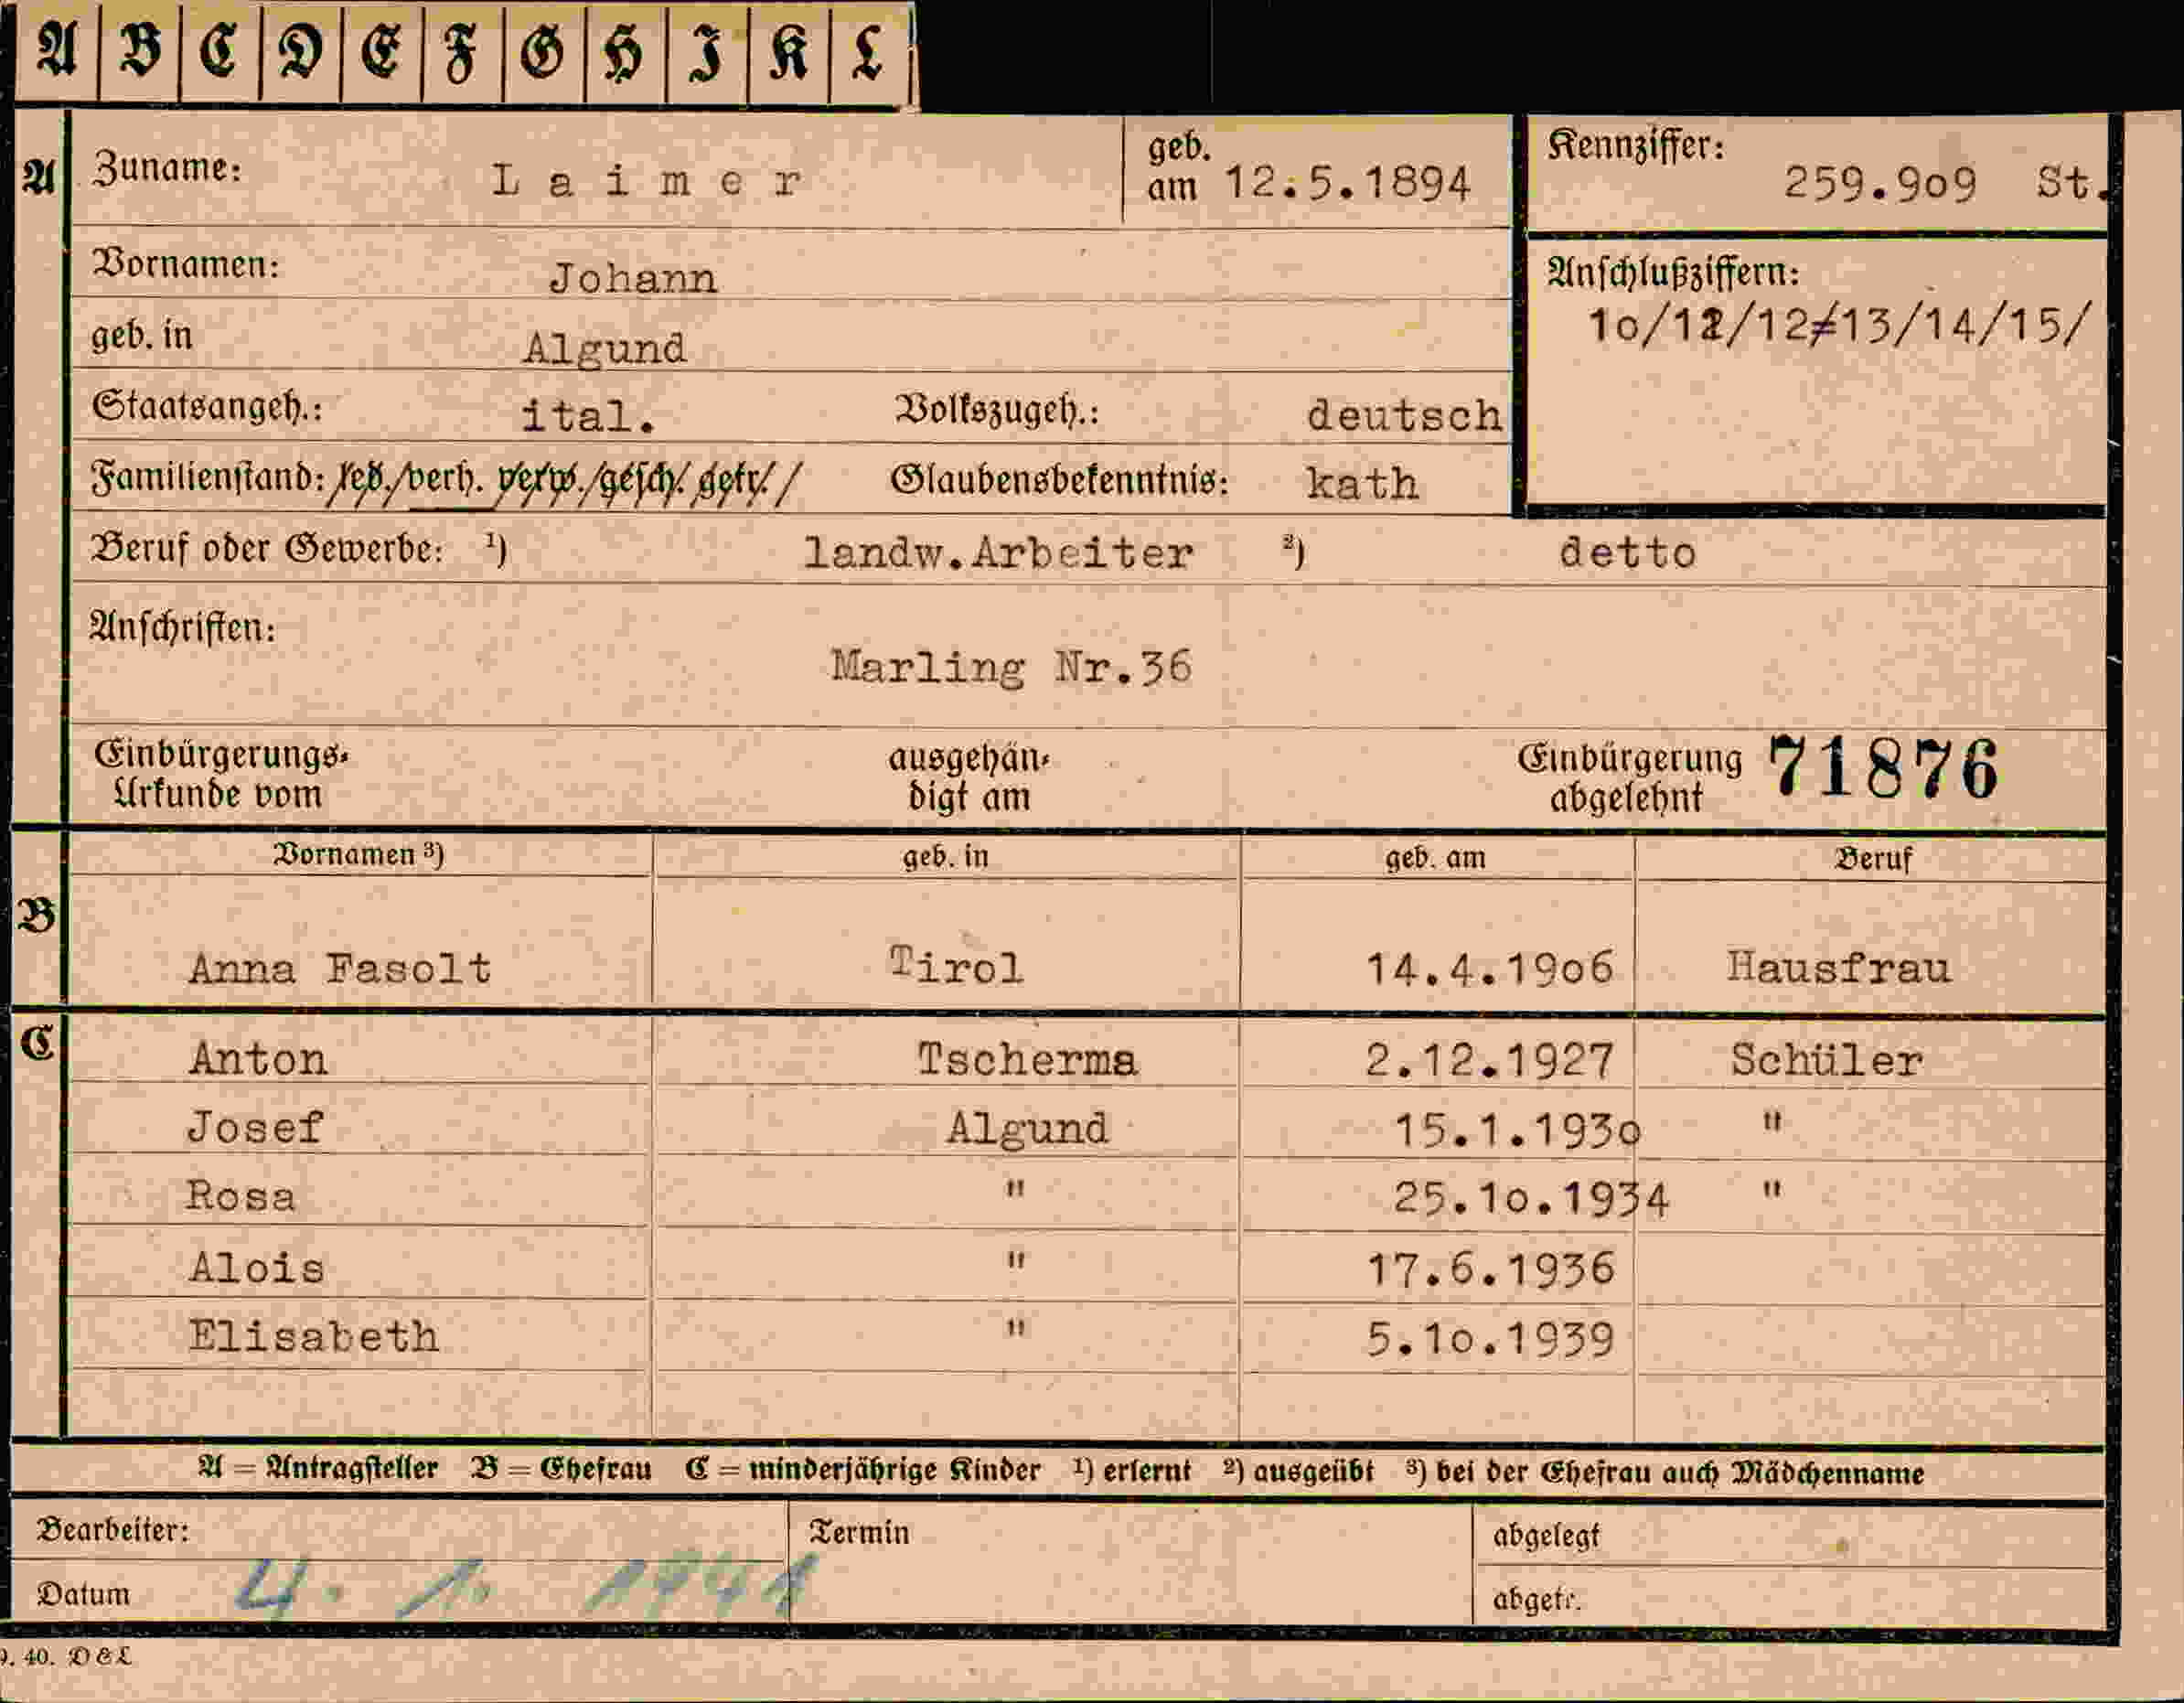 A B C D E F G H I K L
A Zuname: Laimer geb. am 12.5.1894 Kennziffer: 259.9o9 St.
Vornamen: Johann Anschlußziffern:
1o/12/12≠13/14/15/
geb. in Algund
Staatsangeh.: ital. Volkszugeh.: deutsch
Familienstand: led./verh. verw./gesch. getr./ Glaubensbekenntnis: kath
Beruf oder Gewerbe: ¹) landw.Arbeiter ²) detto
Anschriften:
Marling Nr.36
Einbürgerungs- ausgehän- Einbürgerung 71876
Urkunde vom digt am abgelehnt
Vornamen ³) geb. in geb. am Beruf
B
Anna Fasolt Tirol 14.4.19o6 Hausfrau
C
Anton Tscherma 2.12.1927 Schüler
Josef Algund 15.1.193o "
Rosa " 25.1o.1934 "
Alois " 17.6.1936
Elisabeth " 5.1o.1939
A = Antragsteller B = Ehefrau C = minderjährige Kinder ¹) erlernt ²) ausgeübt ³) bei der Ehefrau auch Mädchenname
Bearbeiter: Termin abgelegt
Datum 4. 1. 1941 abgetr.
9. 40. D & L